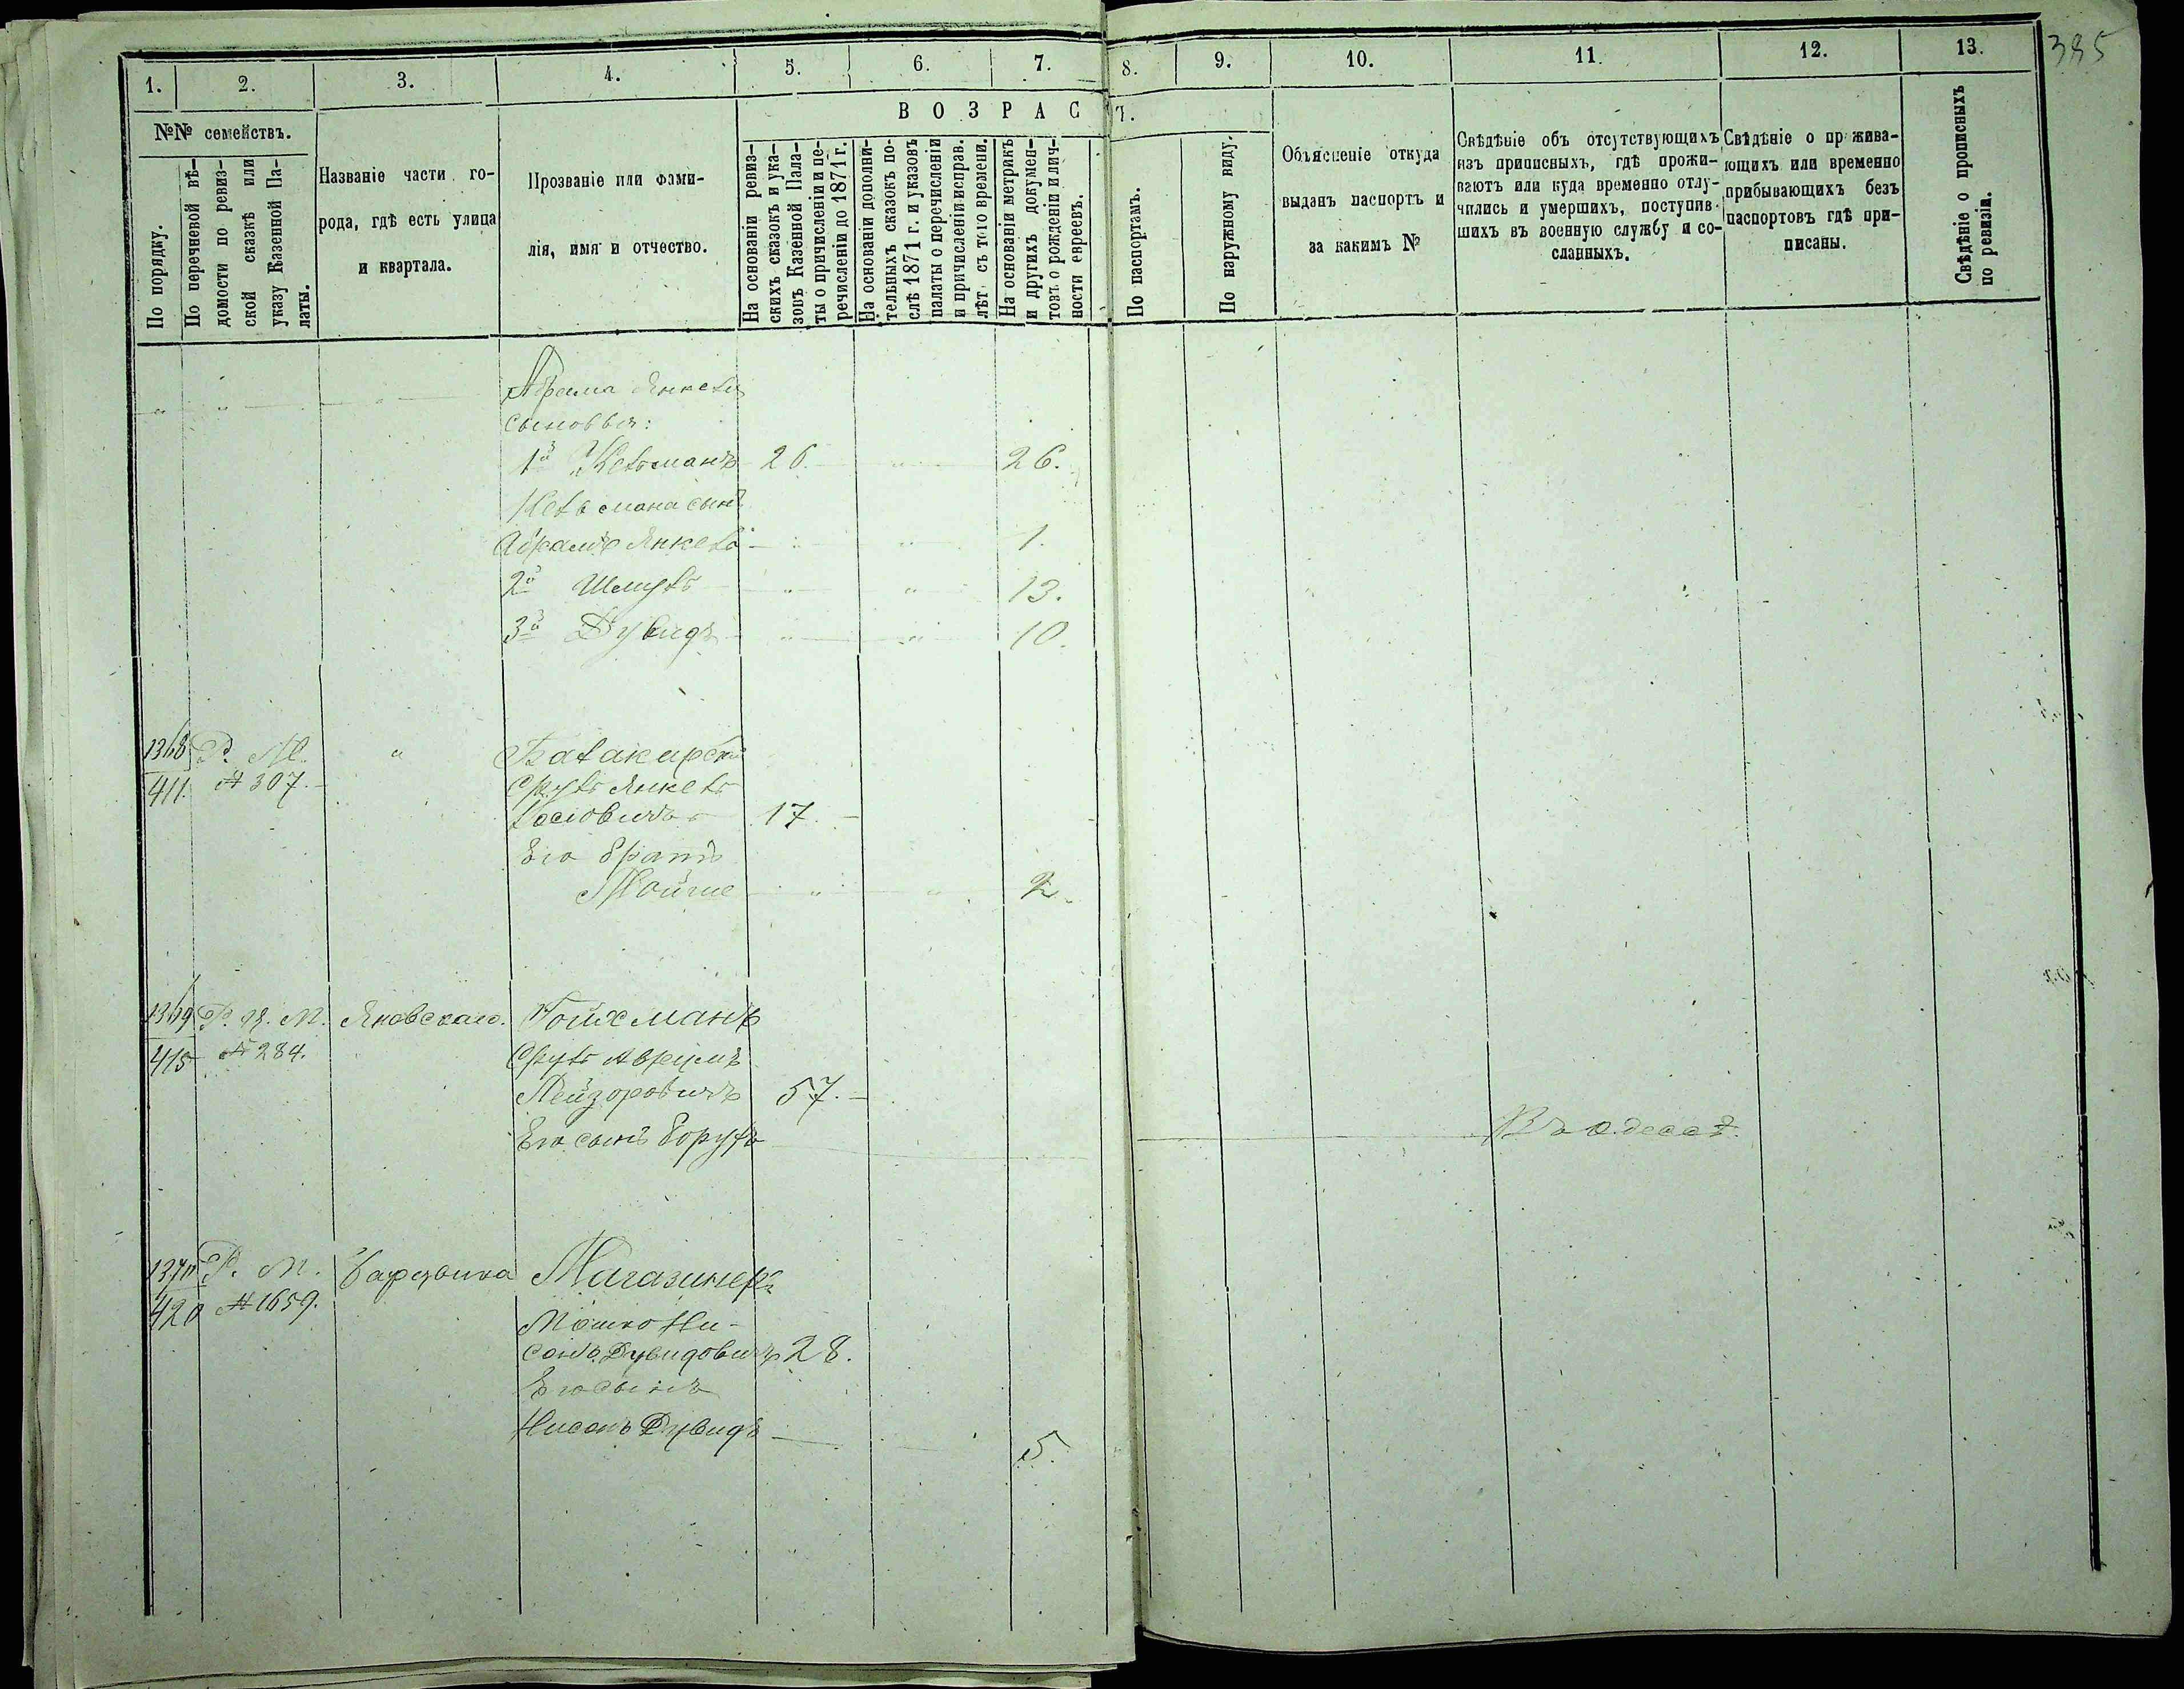 385
1. 2. 3. 4. 5. 6. 7. 8. 9. 10. 11. 12. 13.
№№ семействъ.
По порядку.
По перечневой вѣ-
домости по ревиз-
ской сказкѣ или
указу Казенной Па-
латы.
Названіе части го-
рода, гдѣ есть улица
и квартала.
Прозваніе или фами-
лія, имя и отчество.
ВОЗРАСТ.
На основаніи ревиз-
скихъ сказокъ и ука-
зовъ Казенной Пала-
ты о причисленіи и пе-
речисленіи до 1871 г.
На основаніи дополни-
тельныхъ сказокъ по-
слѣ 1871 г. и указовъ
палаты о перечисленіи
и причисленіи исправ.
лѣт. съ того времени.
На основаніи метрикъ
и другихъ докумен-
товъ о рожденіи и лич-
ности евреевъ.
По паспортамъ.
По наружному виду.
Объясненіе откуда
выданъ паспортъ и
за какимъ №
Свѣдѣніе объ отсутствующихъ
изъ приписныхъ, гдѣ прожи-
ваютъ или куда временно отлу-
чились и умершихъ, поступив-
шихъ въ военную службу и со-
сланныхъ.
Свѣдѣніе о прожива-
ющихъ или временно
прибывающихъ безъ
паспортовъ гдѣ при-
писаны.
Свѣдѣніе о прописныхъ
по ревизіи.
" " " Абрама Янкеля
сыновья:
1й Кельманъ 26. " 26.
Кельмана сынъ
Абрамъ Янкель " " 1.
2й Шмуль " " 13.
3й Дувидъ " " 10.
1368 Р. М. "
411 № 307. Сруль Янкель
Іосіовичъ 17.
Его братъ
Мойше " " 2.
1369 Р. Я. М. Яновскаго. Гойхманъ
415 № 284. Сруль Аврумъ
Лейзоровичъ 57.
Его сынъ Борухъ Въ Одессѣ.
1370 Р. М. Магазинеръ
420 № 1659. Мошко Ни-
сонъ Дувидовичъ 28.
Его сынъ
Нисонъ Дувидъ 5.